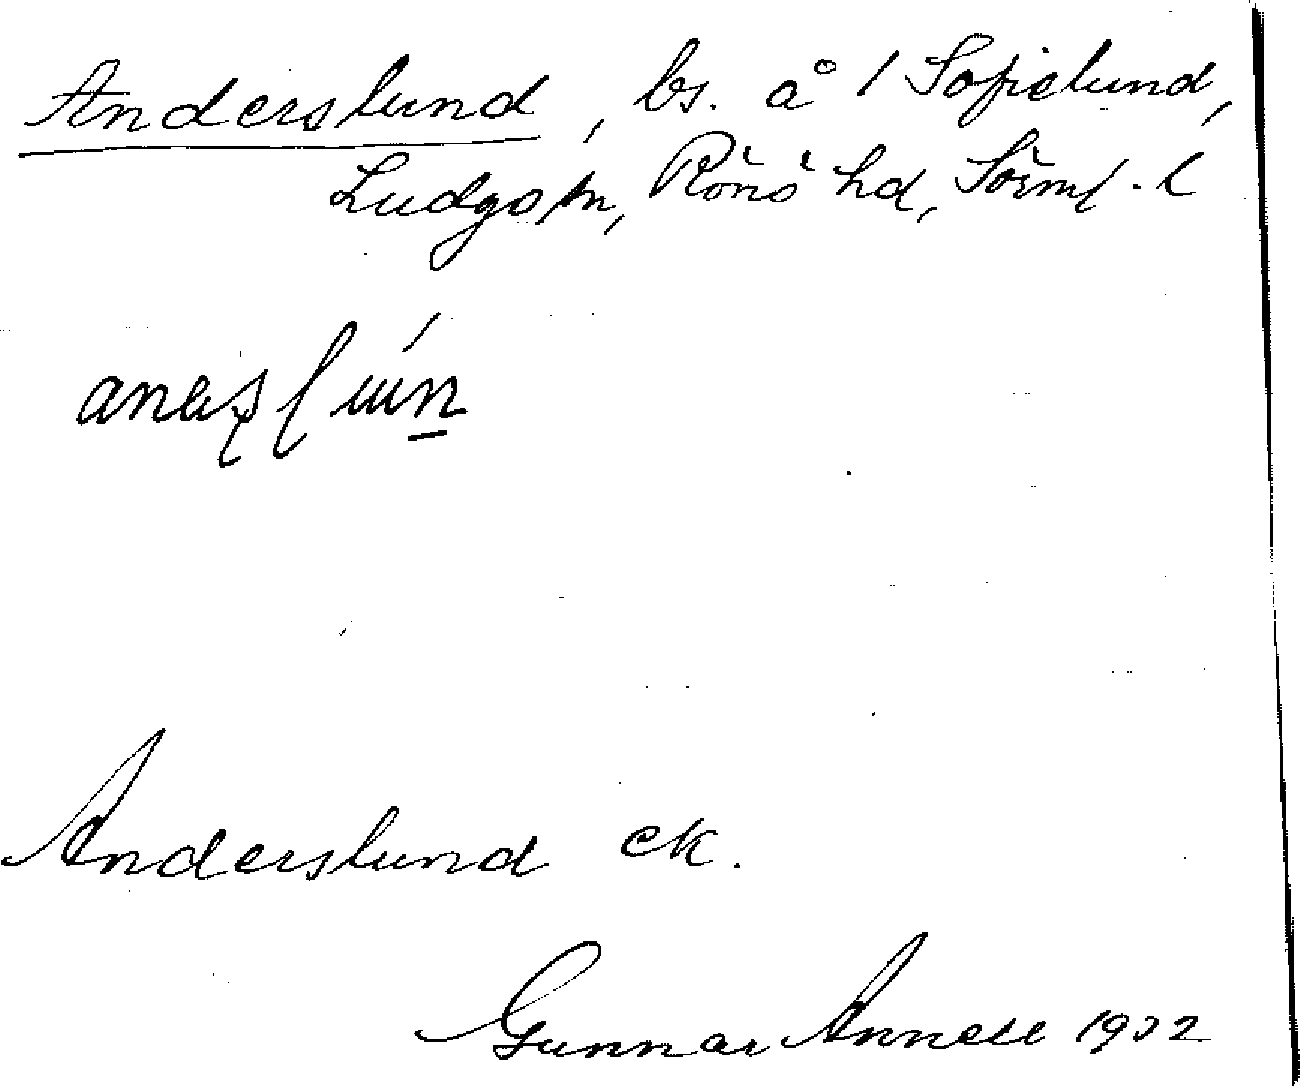 Anderslund, bs. å 1 Sofielund,
Ludgo sn, Rönö hd, Sörml. l
Anderslund ek.
Gunnar Annell 1932